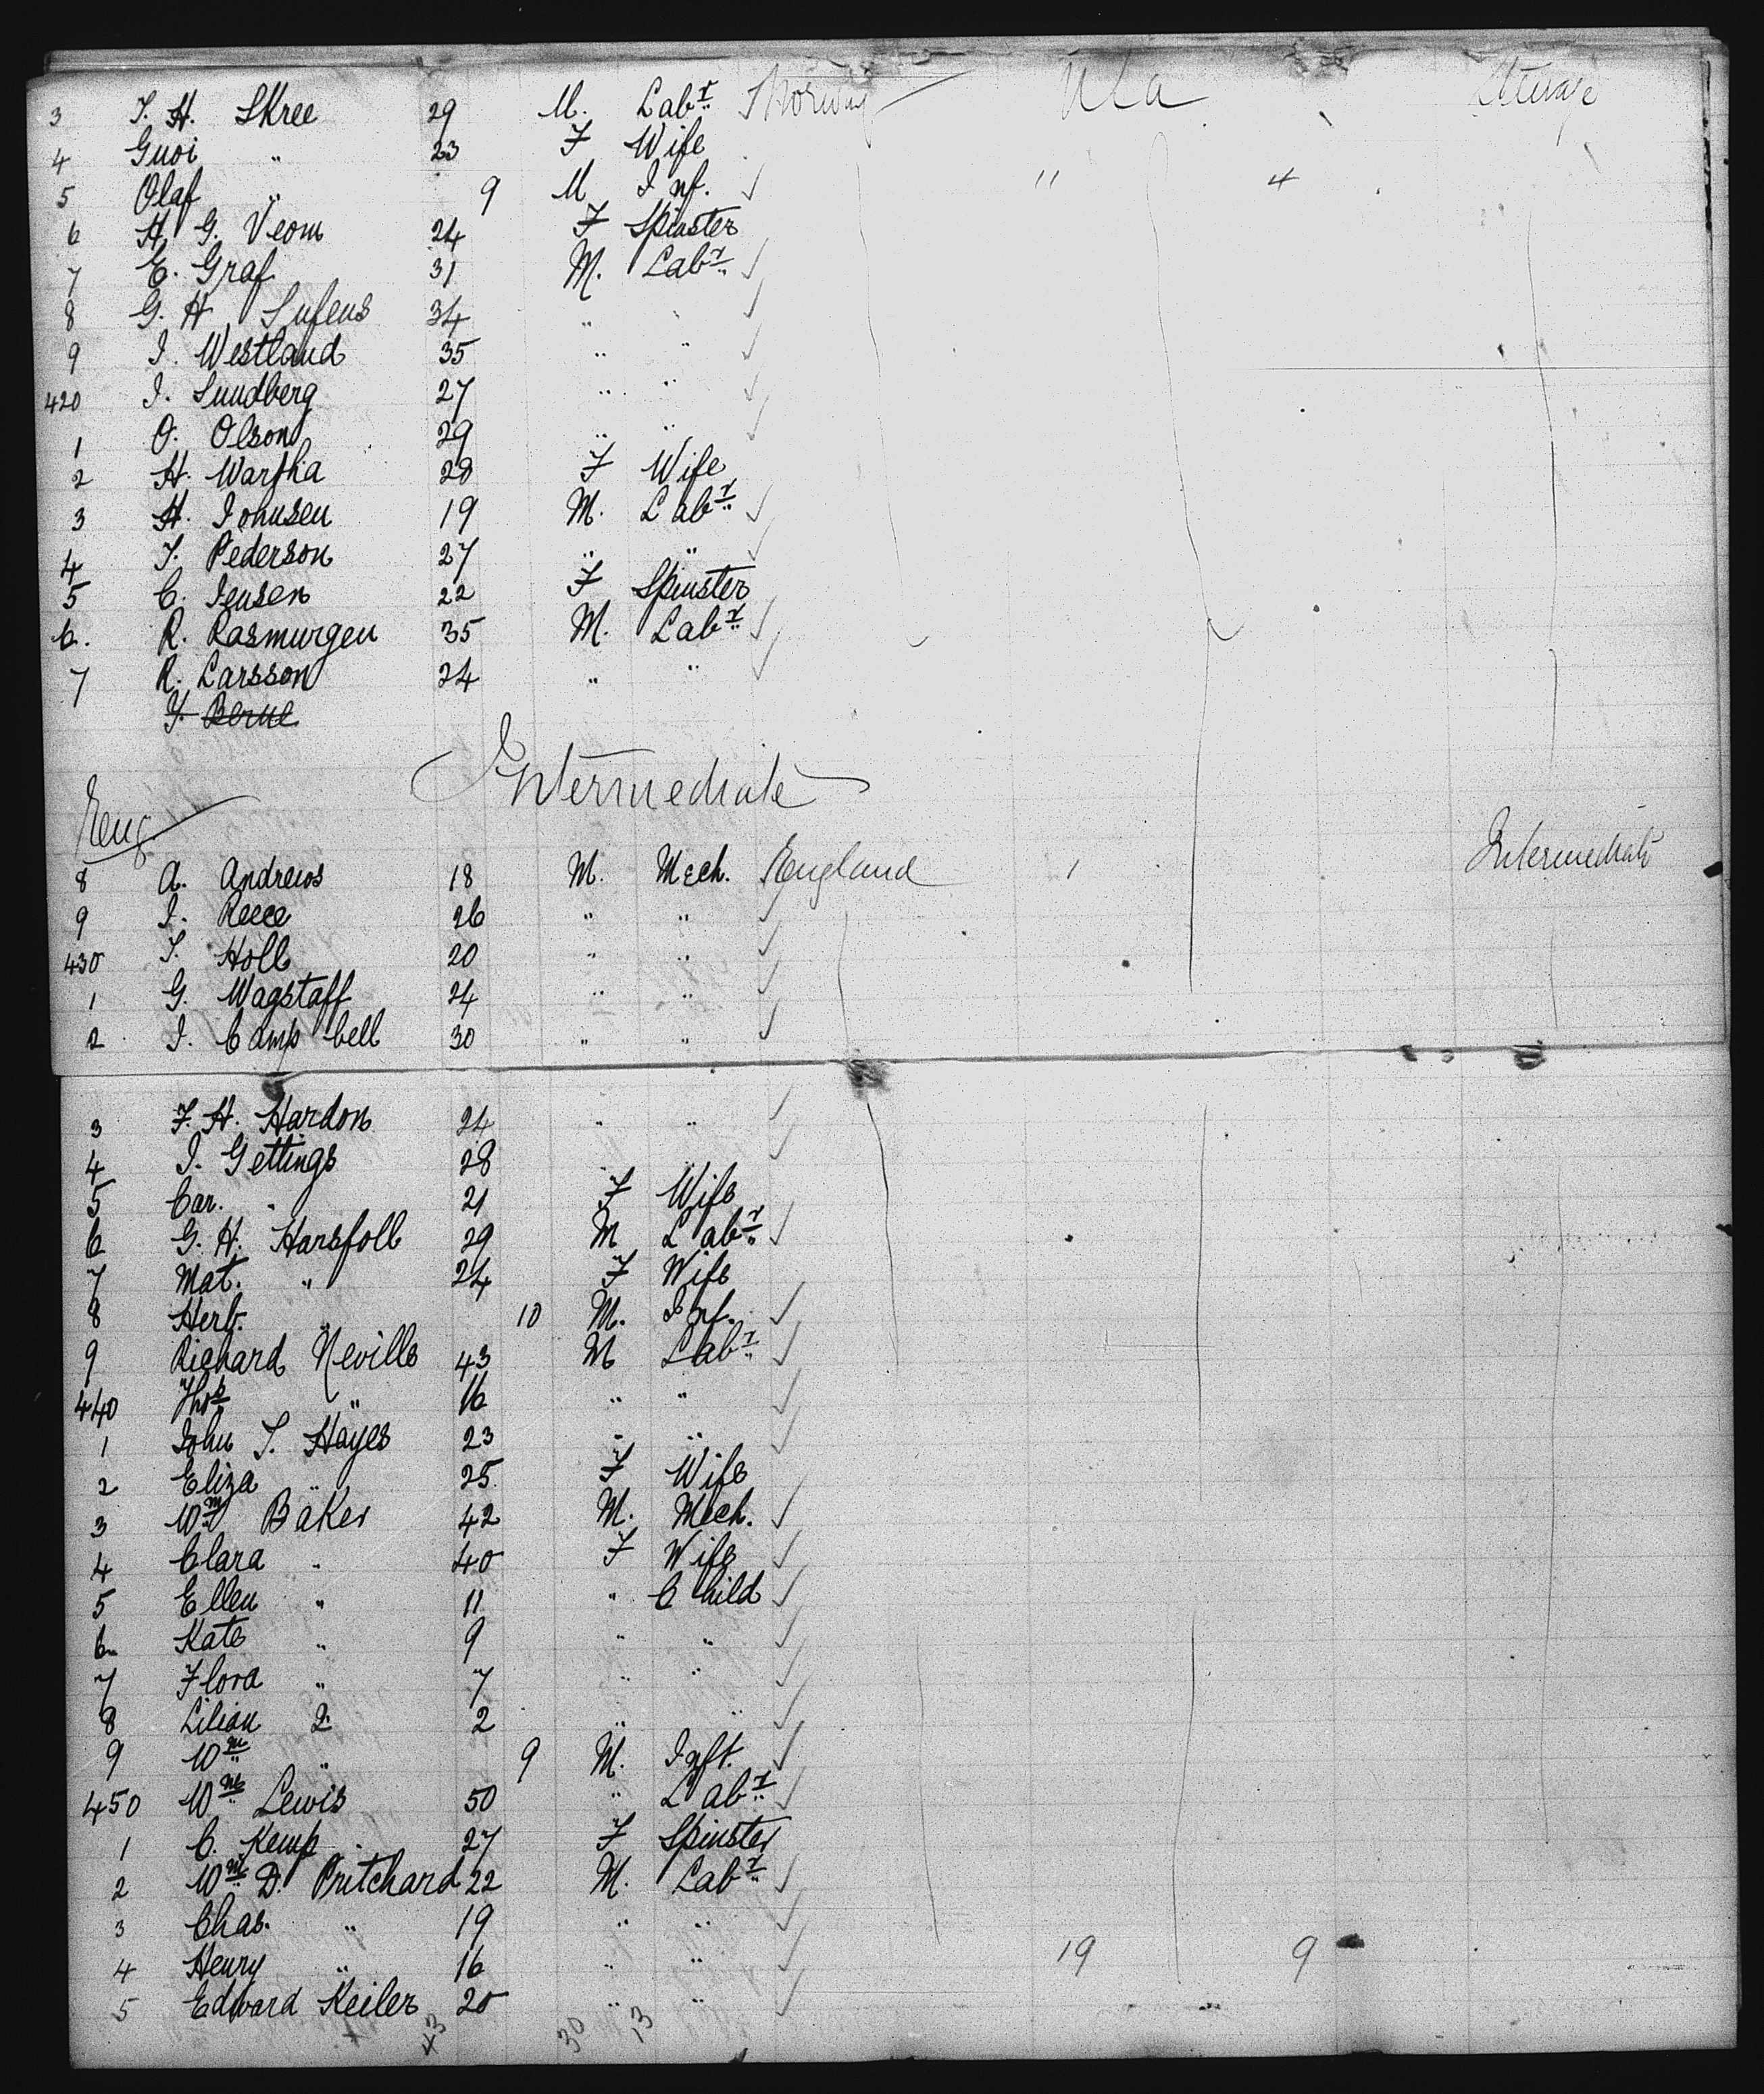 3 T. H. Skree 29 M. Labr Norway USA Steerage
4 Guoi " 23 F Wife
5 Olaf " 9 M Inf. 11 4
6 H. G. Veom 24 F Spinster
7 E. Graf 31 M. Labr
8 G. H. Sufens 34 " "
9 I. Westland 35 " "
420 I. Sundberg 27 " "
1 O. Olson 29 " "
2 H. Wartha 28 F Wife
3 H. Johnsen 19 M. Labr
4 T. Pederson 27 " "
5 C. Jensen 22 F Spinster
6. R. Rasmurgen 35 M. Labr
7 R. Larsson 24 " "
F. Berne
Intermediate
Eng.
8 A. Andrews 18 M. Mech. England 1 Intermediate
9 I. Reece 26 " "
430 T. Holl 20 " "
1 G. Wagstaff 24 " "
2 I. Campbell 30 " "
3 F. H. Hardon 24 " "
4 I. Gettings 28
5 Car. " 21 F Wife
6 G. H. Harsfoll 29 M Labr
7 Mat. " 24 F Wife
8 Herb. " 10 M. Inf.
9 Richard Neville 43 M Labr
440 Thos " 16 " "
1 John T. Hayes 23 " "
2 Eliza " 25 F Wife
3 Wm Baker 42 M. Mech.
4 Clara " 40 F Wife
5 Ellen " 11 " Child
6 Kate " 9 " "
7 Flora " 7 " "
8 Lilian 2 2 " "
9 Wm " 9 M. Inft.
450 Wm Lewis 50 " Labr
1 C. Kemp 27 F Spinster
2 Wm D. Pritchard 22 M. Labr
3 Chas. " 19 " "
4 Henry " 16 " " 19 9
5 Edward Keiler 20 " "
43 30 13